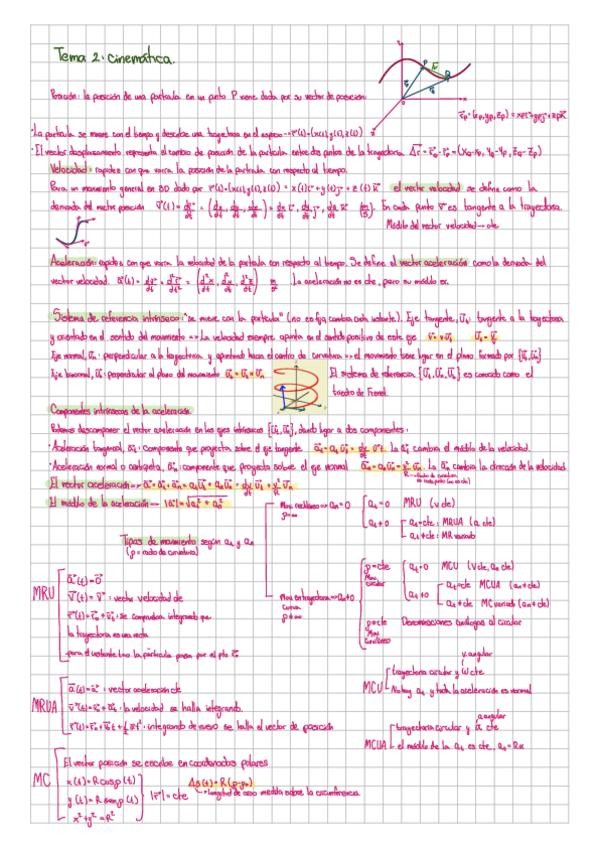 Tema 2: cinemática.
Posición: la posición de una partícula en un punto P viene dada por su vector de posición:
r⃗p = (xp, yp, zp) = xp i⃗ + yp j⃗ + zp k⃗
·La partícula se mueve con el tiempo y describe una trayectoria en el espacio → r⃗(t) = (x(t), y(t), z(t))
·El vector desplazamiento representa el cambio de posición de la partícula entre dos puntos de la trayectoria. Δr⃗ = r⃗Q - r⃗P = (xQ-xP, yQ-yP, zQ-zP)
Velocidad: rapidez con que varía la posición de la partícula con respecto al tiempo.
Para un movimiento general en 3D dado por r⃗(t) = (x(t), y(t), z(t)) = x(t) i⃗ + y(t) j⃗ + z(t) k⃗ el vector velocidad se define como la
derivada del vector posición v⃗(t) = dr⃗/dt = (dx/dt, dy/dt, dz/dt) = dx/dt i⃗ + dy/dt j⃗ + dz/dt k⃗ (m/s). En cada punto v⃗ es tangente a la trayectoria.
Módulo del vector velocidad → cte
Aceleración: rapidez con que varía la velocidad de la partícula con respecto al tiempo. Se define el vector aceleración como la derivada del
vector velocidad. a⃗(t) = dv⃗/dt = d²r⃗/dt² = (d²x/dt, d²y/dt, d²z/dt) m/s² . La aceleración no es cte, pero su módulo es.
Sistema de referencia intrínseco: "se mueve con la partícula" (no es fijo, cambia cada instante). Eje tangente, u⃗t: tangente a la trayectoria
y orientado en el sentido del movimiento => La velocidad siempre apunta en el sentido positivo de este eje v⃗ = v u⃗t u⃗t = v⃗/v
Eje normal, u⃗n: perpendicular a la trayectoria y apuntado hacia el centro de curvatura => el movimiento tiene lugar en el plano formado por {u⃗t, u⃗n}
Eje binormal, u⃗b: perpendicular al plano del movimiento u⃗b = u⃗t × u⃗n El sistema de referencia {u⃗t, u⃗n, u⃗b} es conocido como el
triedro de Frenet.
Componentes intrínsecas de la aceleración
Podemos descomponer el vector aceleración en los ejes intrínsecos {u⃗t, u⃗n}, dando lugar a dos componentes:
·Aceleración tangencial, a⃗t: Componente que proyecta sobre el eje tangente a⃗t = at u⃗t = dv/dt u⃗t. La a⃗t cambia el módulo de la velocidad.
·Aceleración normal o centrípeta, a⃗n: componente que proyecta sobre el eje normal a⃗n = an u⃗n = v²/R u⃗n. La a⃗n cambia la dirección de la velocidad.
El vector aceleración => a⃗ = a⃗t + a⃗n = at u⃗t + an u⃗n = dv/dt u⃗t + v²/R u⃗n
El módulo de la aceleración → |a⃗| = √at² + an²
Tipos de movimiento según at y an
(ρ = radio de curvatura)
Mov. rectilíneo => an=0
ρ=∞
at=0 MRU (v cte)
at≠0
at=cte: MRUA (a cte)
at≠cte: MR variado
Mov en trayectoria => an≠0
curva
ρ≠∞
ρ=cte
Mov.
circular
at=0 MCU (v cte, an cte)
at≠0
at=cte MCUA (an≠cte)
at≠cte MC variado (an≠cte)
ρ≠cte
Mov
curvilíneo
Denominaciones análogas al circular
MRU
a⃗(t) = 0⃗
v⃗(t) = v⃗: vector velocidad cte
r⃗(t) = r⃗o + v⃗t: se comprueba integrando que
la trayectoria es una recta
para el instante t=0 la partícula pasa por el pto r⃗o
v.angular
MCU
trayectoria circular y ω cte
No hay at y toda la aceleración es normal
MRUA
a⃗(t) = a⃗: vector aceleración cte
v⃗(t) = v⃗o + a⃗t: la velocidad se halla integrando.
r⃗(t) = r⃗o + v⃗o t + ½ a⃗t²: integrando de nuevo se halla el vector de posición
a.angular
MCUA
trayectoria circular y α cte
el módulo de la at es cte, at = Rα
MC
El vector posición se escribe en coordenadas polares
x(t) = R cos φ(t)
y(t) = R sen φ(t)
x² + y² = R²
|r⃗| = cte
Δs(t) = R(φ-φo)
longitud de arco medida sobre la circunferencia